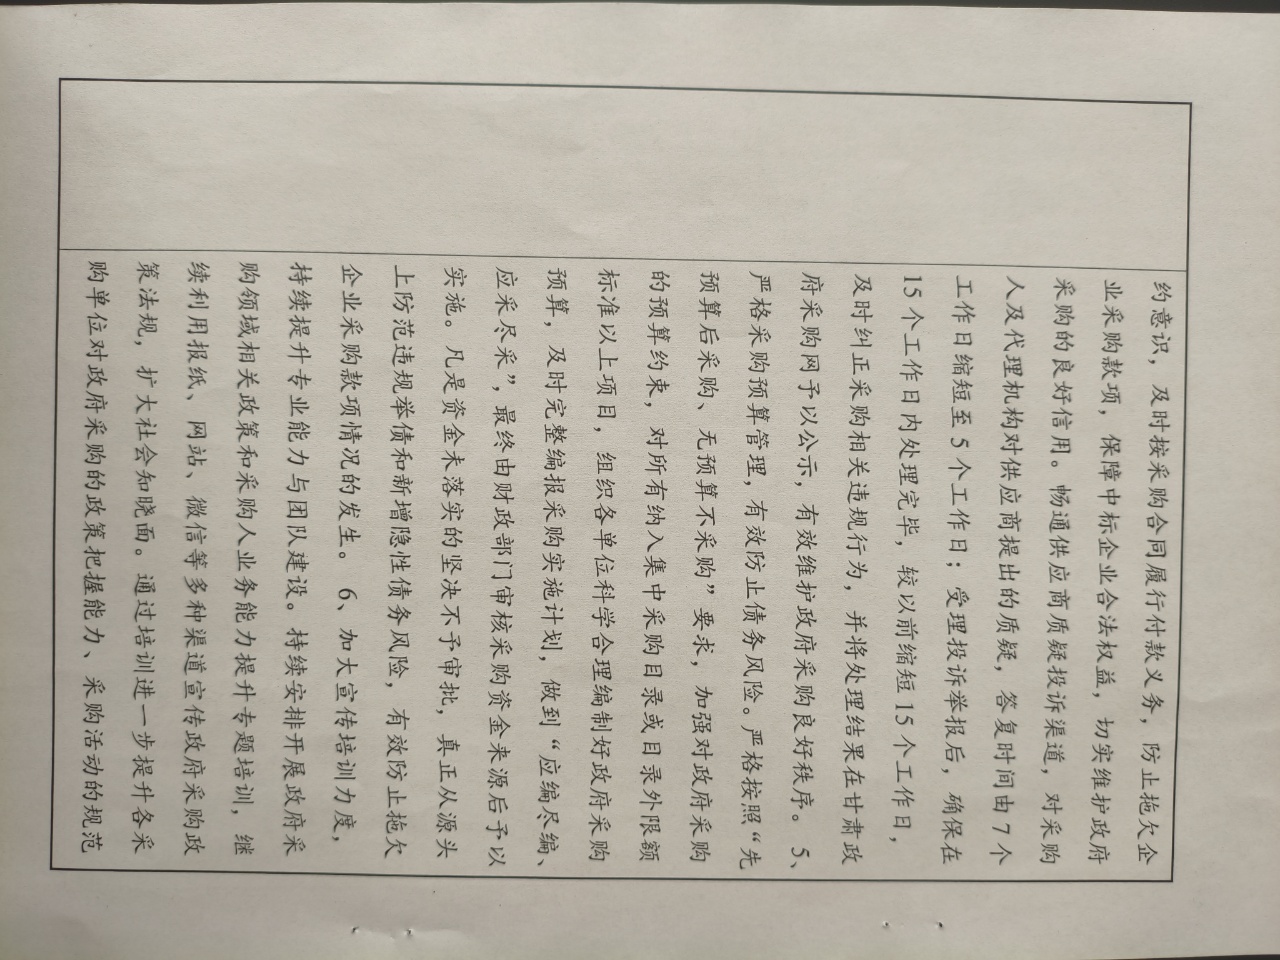 约意识，及时按采购合同履行付款义务，防止拖欠企
业采购款项，保障中标企业合法权益，切实维护政府
采购的良好信用。畅通供应商质疑投诉渠道，对采购
人及代理机构对供应商提出的质疑，答复时间由 7 个
工作日缩短至 5 个工作日；受理投诉举报后，确保在
15 个工作日内处理完毕，较以前缩短 15 个工作日，
及时纠正采购相关违规行为，并将处理结果在甘肃政
府采购网予以公示，有效维护政府采购良好秩序。 5、
严格采购预算管理，有效防止债务风险。严格按照“先
预算后采购、无预算不采购”要求，加强对政府采购
的预算约束，对所有纳入集中采购目录或目录外限额
标准以上项目，组织各单位科学合理编制好政府采购
预算，及时完整编报采购实施计划，做到“应编尽编、
应采尽采”，最终由财政部门审核采购资金来源后予以
实施。凡是资金未落实的坚决不予审批，真正从源头
上防范违规举债和新增隐性债务风险，有效防止拖欠
企业采购款项情况的发生。 6、加大宣传培训力度，
持续提升专业能力与团队建设。持续安排开展政府采
购领域相关政策和采购人业务能力提升专题培训，继
续利用报纸、网站、微信等多种渠道宣传政府采购政
策法规，扩大社会知晓面。通过培训进一步提升各采
购单位对政府采购的政策把握能力、采购活动的规范